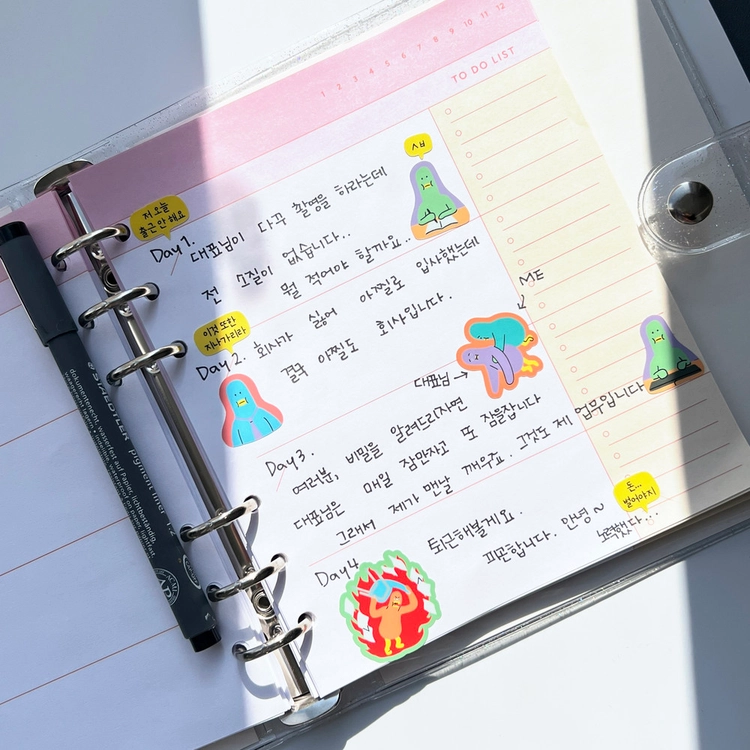 1 2 3 4 5 6 7 8 9 10 11 12
TO DO LIST
저 오늘
출근 안 해요
ㅅㅂ
Day 1. 대표님이 다꾸 촬영을 하라는데
전 소질이 없습니다..
뭘 적어야 할까요..
이것 또한
지나가리라
Day 2. 회사가 싫어 아찔로 입사했는데
결국 아찔도 회사입니다.
ME
대표님 →
Day 3.
여러분, 비밀을 알려드리자면
대표님은 매일 잠만자고 또 잠을잡니다
그래서 제가 맨날 깨우죠. 그것도 제 업무입니다
돈...
벌어야지
Day 4
퇴근해볼게요.
피곤합니다. 안녕~
노력했다...
STAEDTLER pigment liner 1.2
dokumentenecht, wasserfest auf Papier, lichtbeständig.